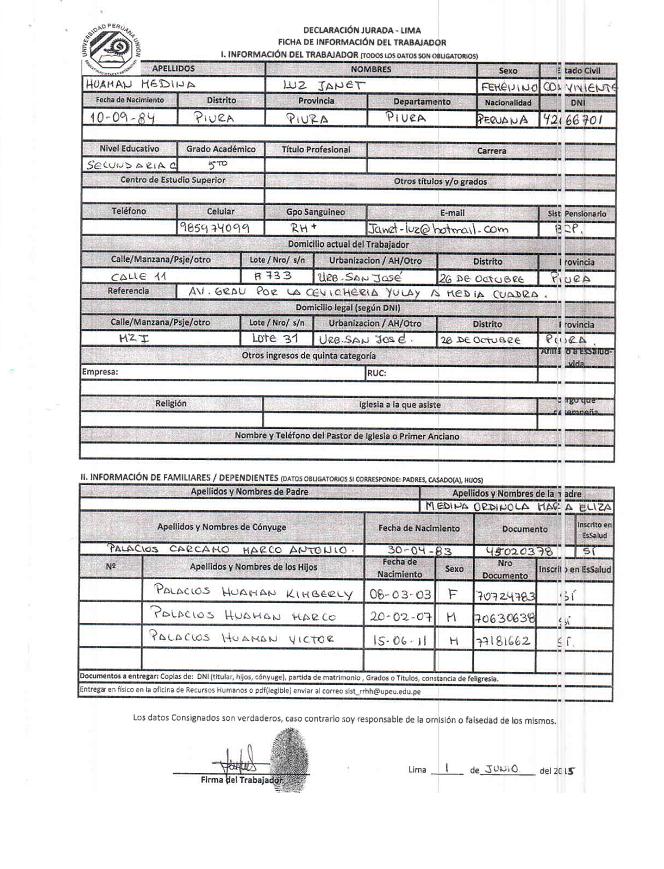 UNIVERSIDAD PERUANA UNION
DECLARACIÓN JURADA - LIMA
FICHA DE INFORMACIÓN DEL TRABAJADOR
I. INFORMACIÓN DEL TRABAJADOR (TODOS LOS DATOS SON OBLIGATORIOS)
APELLIDOS NOMBRES Sexo Estado Civil
HUAMAN MEDINA LUZ JANET FEMENINO CONVIVIENTE
Fecha de Nacimiento Distrito Provincia Departamento Nacionalidad DNI
10-09-84 PIURA PIURA PIURA PERUANA 42166701
Nivel Educativo Grado Académico Título Profesional Carrera
SECUNDARIA C 5TO
Centro de Estudio Superior Otros títulos y/o grados
Teléfono Celular Gpo Sanguineo E-mail Sist Pensionario
985974099 RH+ Janet-luz@hotmail.com
Domicilio actual del Trabajador
Calle/Manzana/Psje/otro Lote / Nro/ s/n Urbanizacion / AH/Otro Distrito Provincia
CALLE 11 733 URB. SAN JOSÉ 26 DE OCTUBRE PIURA
Referencia AV. GRAU POR LA CEVICHERIA YULAY A MEDIA CUADRA.
Domicilio legal (según DNI)
Calle/Manzana/Psje/otro Lote / Nro/ s/n Urbanizacion / AH/Otro Distrito Provincia
MZ I LOTE 31 URB. SAN JOSÉ. 26 DE OCTUBRE PIURA.
Otros ingresos de quinta categoría a EsSalud- vida
Empresa: RUC:
Religión Iglesia a la que asiste que
Nombre y Teléfono del Pastor de Iglesia o Primer Anciano
II. INFORMACIÓN DE FAMILIARES / DEPENDIENTES (DATOS OBLIGATORIOS SI CORRESPONDE: PADRES, CASADO(A), HIJOS)
Apellidos y Nombres de Padre Apellidos y Nombres de la madre
MEDINA ORDINOLA MARIA ELIZA
Apellidos y Nombres de Cónyuge Fecha de Nacimiento Documento Inscrito en EsSalud
PALACIOS CARCAMO MARCO ANTONIO. 30-04-83 45020378 SI
Nº Apellidos y Nombres de los Hijos Fecha de Nacimiento Sexo Nro Documento Inscrito en EsSalud
PALACIOS HUAMAN KIMBERLY 08-03-03 F 70724783 SÍ
PALACIOS HUAMAN MARCO 20-02-07 M 70630638 SÍ
PALACIOS HUAMAN VICTOR 15-06-11 M 77181662 SÍ.
Documentos a entregar: Copias de: DNI (titular, hijos, cónyuge), partida de matrimonio , Grados o Títulos, constancia de feligresia.
Entregar en físico en la oficina de Recursos Humanos o pdf(legible) enviar al correo sist_rrhh@upeu.edu.pe
Los datos Consignados son verdaderos, caso contrario soy responsable de la omisión o falsedad de los mismos.
Firma del Trabajador
Lima 1 de JUNIO del 2015